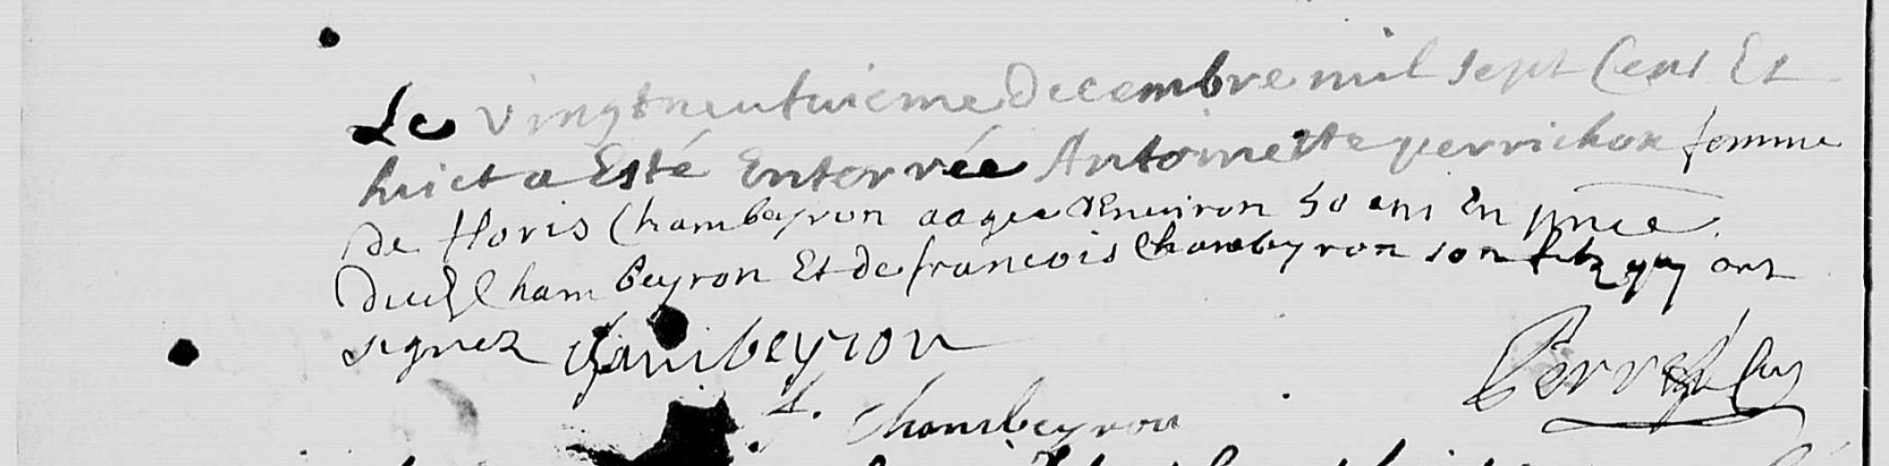 Le vingtneufuieme decembre mil sept Cens Et
huict a Esté Enterrée Antoinette perrichon femme
de floris Chambeyron aagee d'Enuiron 50 ans En pnce
dud Chambeyron Et de francois Chambeyron son filz quy ont
signez Chambeyron
f. Chambeyron
Perret Cur